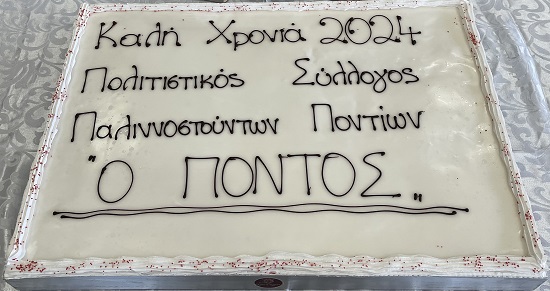 Καλή Χρονιά 2024
Πολιτιστικός Σύλλογος
Παλιννοστούντων Ποντίων
"Ο ΠΟΝΤΟΣ"